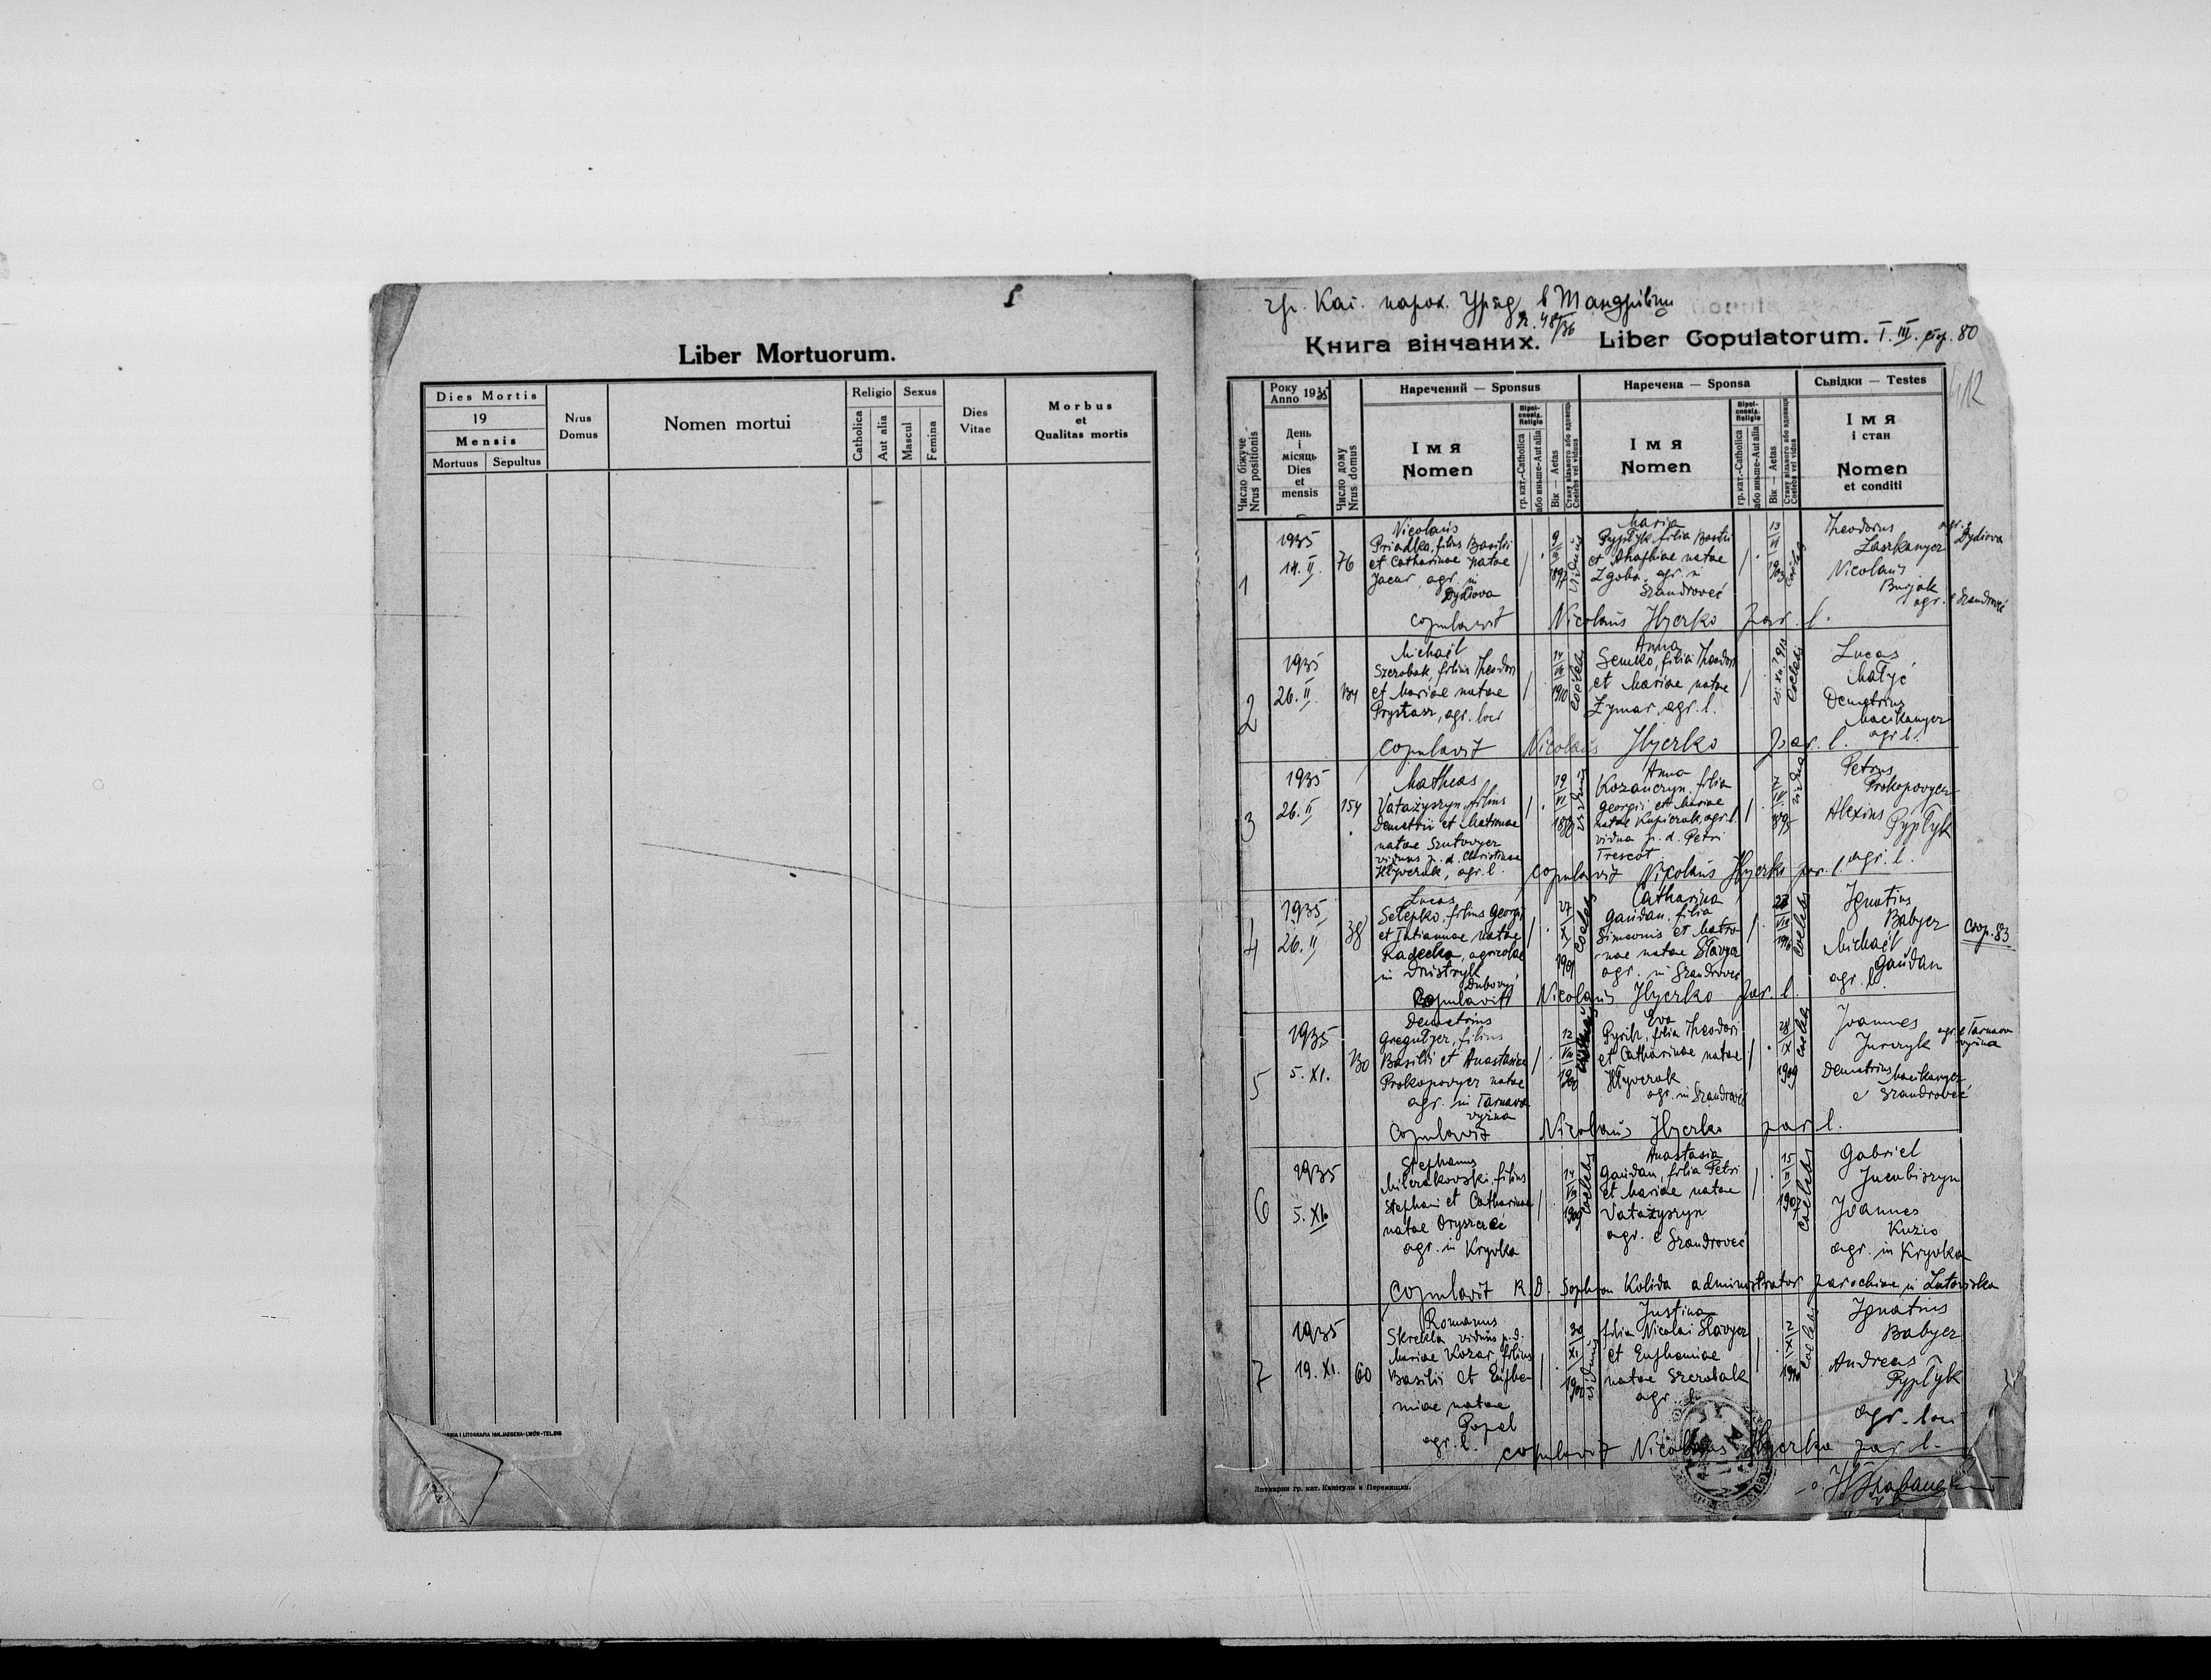 Liber Mortuorum.
Dies Mortis
19
Mensis
Mortuus
Sepultus
Nrus
Domus
Nomen mortui
Religio
Catholica
Aut alia
Sexus
Mascul
Femina
Dies
Vitae
Morbus
et
Qualitas mortis
гр. Кат. парох. Уряд в Шандрівци
Книга вінчаних.
Liber Copulatorum.
Число біжуче
Nrus positionis
Року
Anno 1935
День
і
місяць
Dies
et
mensis
Число дому
Nrus domus
Наречений — Sponsus
Імя
Nomen
Віроі-
сповід.
Religio
гр. кат.-Catholica
або иньше-Aut alia
Вік — Aetas
Стану вільного або вдовець
Coelebs vel viduus
Наречена — Sponsa
Імя
Nomen
Віроі-
сповід.
Religio
гр. кат.-Catholica
або иньше-Aut alia
Вік — Aetas
Стану вільного або вдовиця
Coelebs vel vidua
Сьвідки — Testes
Імя
і стан
Nomen
et conditi
1
1935
14. II.
76
Nicolaus
Priadka, filius Basilii
et Catharinae natae
Jacur, agr. in
Dydiova
viduus
Maria
Pyptyk, filia
et Ahaphiae natae
Zgoba, agr. in
Szandroveć
coelebs
Theodorus
Laszkanyez
agr. e Dydiova
Nicolaus
Burjak
agr. e Szandroveć
copulavit Nicolaus Hyerko par. l.
2
1935
26. II.
134
Michaël
Szerobak, filius Theodori
et Mariae natae
Prystasz, agr. loci
14
VII
1910
coelebs
Anna
Semko, filia Theodori
et Mariae natae
Zymar, agr. l.
coelebs
Lucas
Małyć
Demetrius
Macikanyez
agr. l.
copulavit Nicolaus Hyerko par. l.
3
1935
26. II
154
Matheas
Vatażyszyn, filius
Demetrii et Matronae
natae Szutovyez
viduus p. d. Christinae
Hłyverak, agr. l.
19
VI
viduus
Anna
Kozanczyn, filia
Georgii et Mariae
natae Kapierak, agr. l
vidua p. d. Petri
Trescot
vidua
Petrus
Prokopovyez
Alexius
Pyptyk
agr. l.
copulavit Nicolaus Hyerko par. l.
4
1935
26. II
38
Lucas
Selepko, filius Georgii
et Tatiannae natae
Radecka, agricolae
in Dnistryk
Dubovyj
27
XI
1901
coelebs
Catharina
Gaudan, filia
Simeonis et Matro-
nae natae Slavyez
agr. in Szandroveć
coelebs
Ignatius
Babyez
Michaël
Gaudan
agr. l.
Copulavit Nicolaus Hyerko par. l.
5
1935
5. XI.
130
Demetrius
Gregulyez, filius
Basilii et Anastasiae
Prokopovyez natae
agr. in Tarnava
vyżna
12
VIII
1900
Eva
Pyrih, filia Theodori
et Catharinae natae
Hłyverak
agr. in Szandroveć
28
IX
1909
coelebs
Joannes
Jurczyk
agr. e Tarnava
vyżna
Demetrius Macikanyez
e Szandroveć
Copulavit Nicolaus Hyerko par. l.
6
1935
5. XI.
Stephanus
Milczakovski, filius
Stephani et Catharinae
natae Oryszczeć
agr. in Kryvka
14
VIII
1909
coelebs
Anastasia
Gaudan, filia Petri
et Mariae natae
Vatażyszyn
agr. e Szandroveć
15
II
1907
coelebs
Gabriel
Jacubiszyn
Joannes
Kuzio
agr. in Kryvka
copulavit R. D. Sophron Kolida administrator parochiae in Lutoviska
7
1935
19. XI.
60
Romanus
Skrekla viduus p. d.
Mariae Kozar filius
Basilii et Euphe-
miae natae
Popel
agr. l.
30
XI
1900
viduus
Justina
filia Nicolai Slavyez
et Euphemiae
natae Szerobak
agr. l.
coelebs
Ignatius
Babyez
Andreas
Pyptyk
agr. loci
copulavit Nicolaus Hyerko par. l.
Друкарня гр. кат. Капітули в Перемишли.